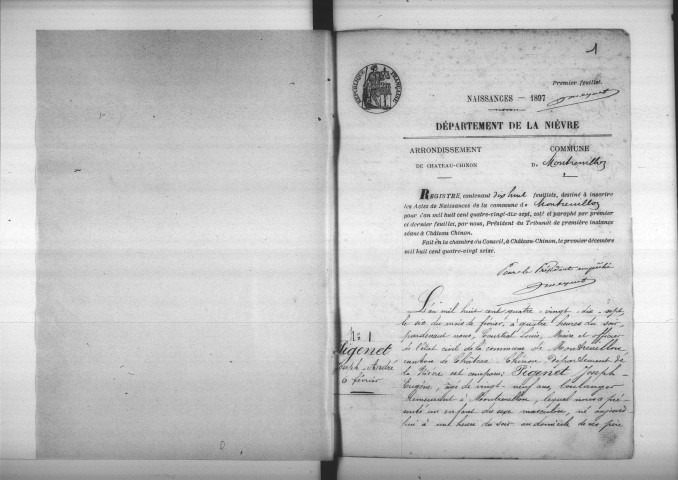 1
Premier feuillet.
RÉPUBLIQUE FRANÇAISE
NAISSANCES — 1897
DÉPARTEMENT DE LA NIÈVRE
ARRONDISSEMENT
DE CHATEAU-CHINON
COMMUNE
De Montreuillon
REGISTRE, contenant dix huit feuillets, destiné à inscrire
les Actes de Naissances de la commune de Montreuillon
pour l'an mil huit cent quatre-vingt-dix-sept, coté et paraphé par premier
et dernier feuillet, par nous, Président du Tribunal de première instance
séant à Château Chinon.
Fait en la chambre du Conseil, à Château-Chinon, le premier décembre
mil huit cent quatre-vingt seize.
Pour le Président empêché
N° 1
Pigenet
Joseph-André
6 février
L'an mil huit cent quatre-vingt-dix-sept,
le six du mois de février, à quatre heures du soir
pardevant nous, Louis, Maire et officier
de l'état civil de la commune de Montreuillon,
canton de Château-Chinon, département de
la Nièvre est comparu Pigenet Joseph-
Eugène, âgé de vingt-neuf ans, boulanger
demeurant à Montreuillon, lequel nous a pré-
senté un enfant du sexe masculin, né aujourd'
hui à une heure du soir au domicile de ses père